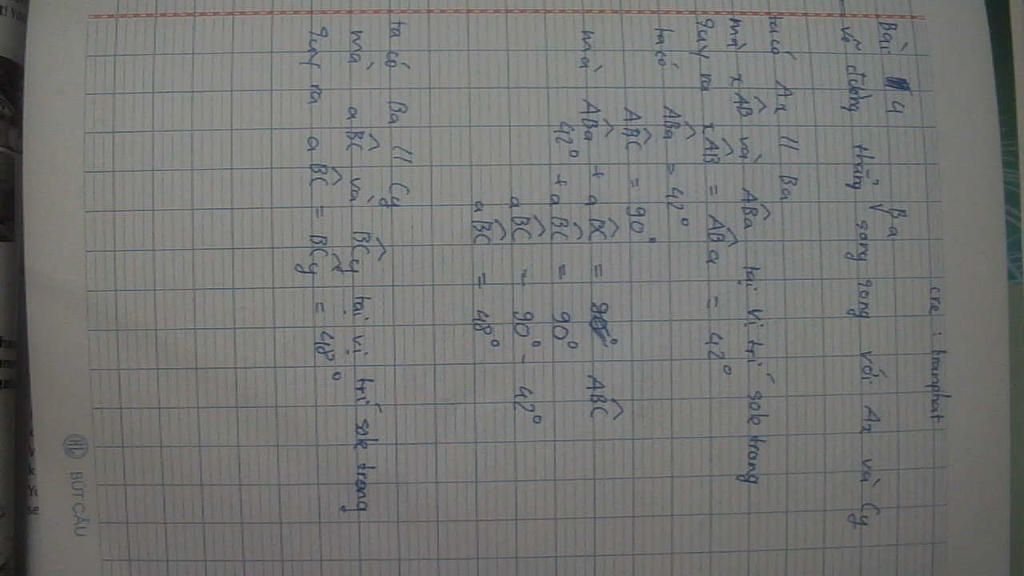 cre : tranphat
Bài 4
Vẽ đường thẳng Ba song song với Ax và Cy
ta có Ax // Ba
mà xAB và ABa tại vị trí sole trong
suy ra xAB = ABa = 42°
ta có ABa = 42°
ABC = 90°
mà ABa + aBC = ABC
42° + aBC = 90°
aBC = 90° - 42°
aBC = 48°
ta có Ba // Cy
mà aBC và BCy tại vị trí sole trong
suy ra aBC = BCy = 48°
BÚT CÂU